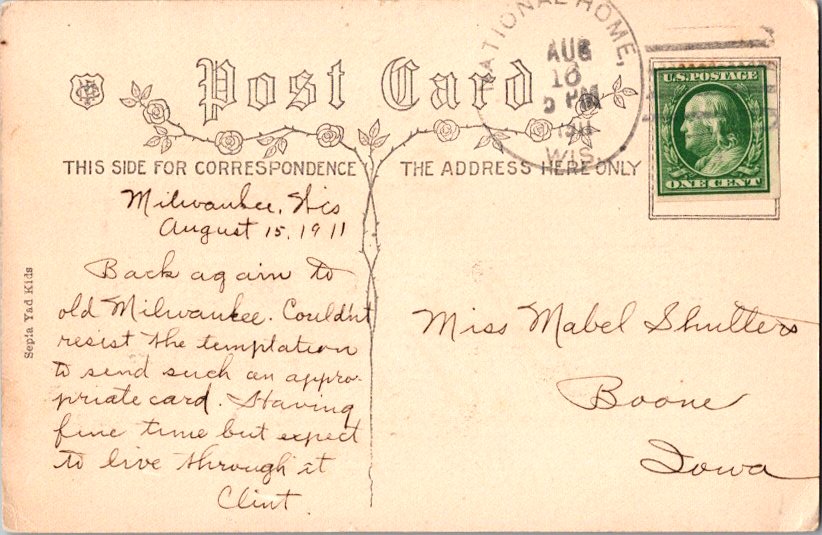 Post Card
NATIONAL HOME,
AUG
16
5 PM
1911
WIS.
U.S. POSTAGE
ONE CENT
THIS SIDE FOR CORRESPONDENCE
THE ADDRESS HERE ONLY
Milwaukee, Wis
August 15, 1911
Back again to
old Milwaukee. Couldn't
resist the temptation
to send such an appro-
priate card. Having
fine time but expect
to live through it
Clint.
Sepia Yad Kids
Miss Mabel Shutters
Boone
Iowa